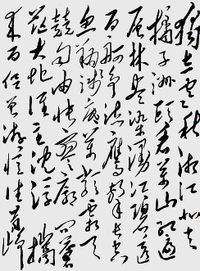 獨立寒秋湘江北去
橘子洲頭看萬山紅遍
层林尽染漫江碧透
百舸争流鹰击长空
鱼翔浅底万类霜天
競自由悵寥廓問蒼
茫大地谁主沉浮攜
来百侣曾游忆往昔峥